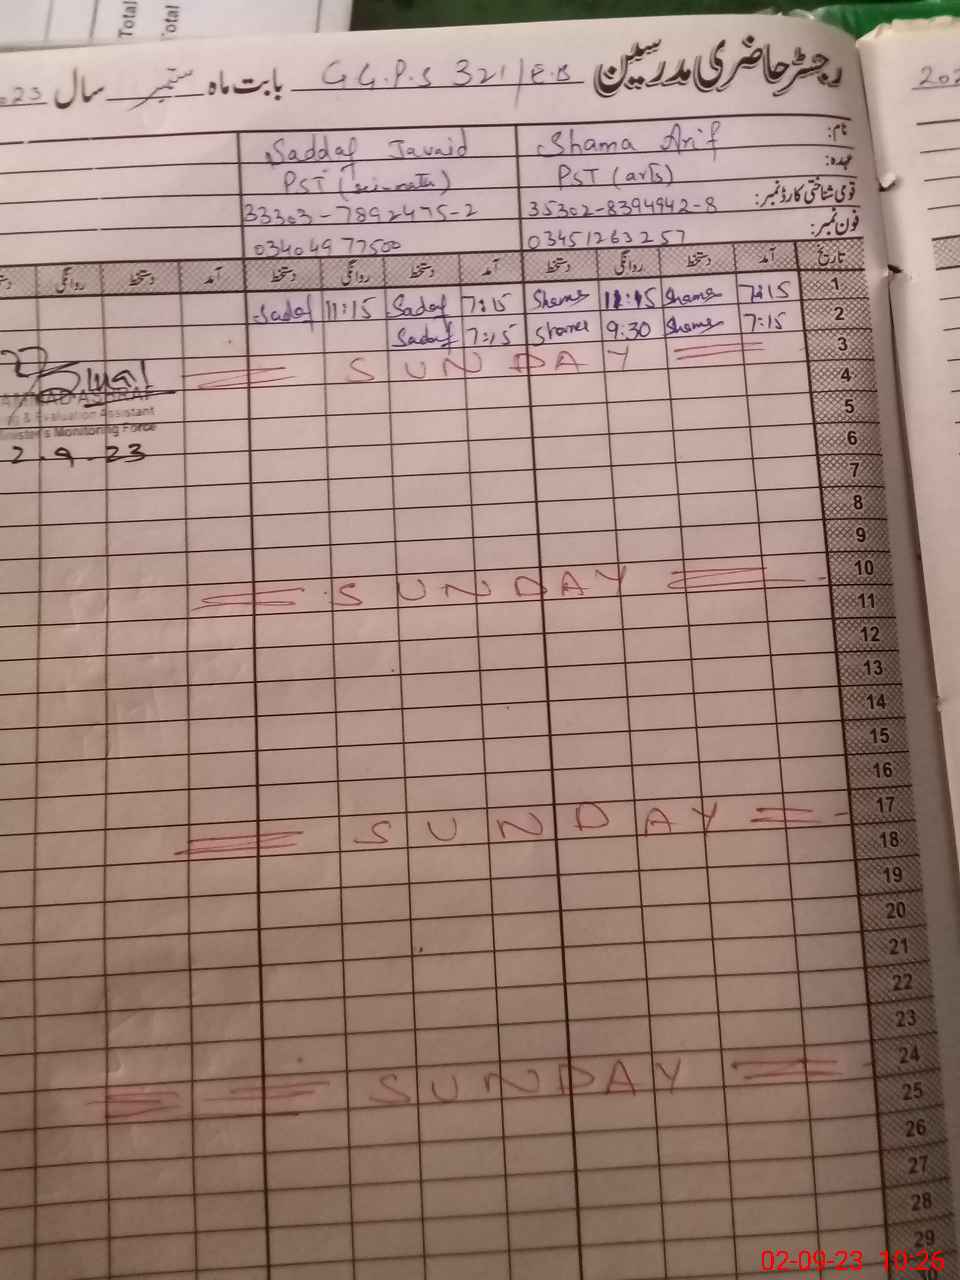 Total
Total
رجسٹر حاضری مدرسین G.G.P.S 321/E.B بابت ماہ ستمبر سال 023
202
نام: Shama Arif Saddaf Javaid
عہدہ: PST (arts) PST
قومی شناختی کارڈ نمبر: 35302-8394942-8 33303-7892475-2
فون نمبر: 03451263257 03404977500
تاریخ آمد دستخط روانگی دستخط آمد دستخط روانگی دستخط آمد دستخط روانگی
1 7:15 Shama 11:15 Shama 7:15 Sadaf 11:15 Sadaf
2 7:15 Shama 9:30 Shama 7:15 Sadaf
3 SUNDAY
4
ASHRAF
5
g & Evaluation Assistant
Minister's Monitoring Force
6
2.9.23
7
8
9
10 SUNDAY
11
12
13
14
15
16
17 SUNDAY
18
19
20
21
22
23
24 SUNDAY
25
26
27
28
29
02-09-23 10:26